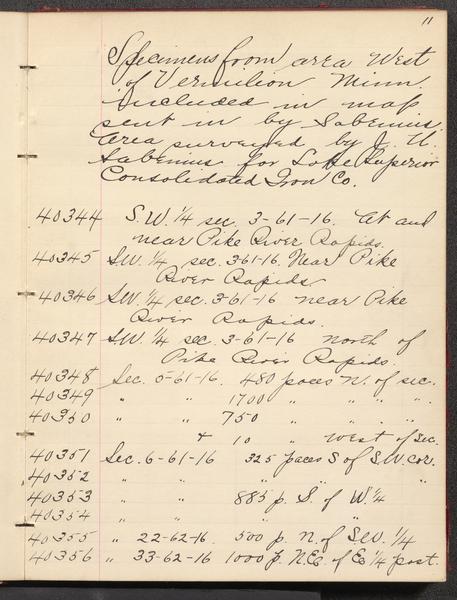 11
Specimens from area West
of Vermilion Minn.
included in map
sent in by Sabenius
Area surveyed by J. U.
Sabenius for Lake Superior
Consolidated Iron Co.
40344 S.W. 1/4 sec. 3-61-16. At and
near Pike River Rapids.
40345 S.W. 1/4 sec. 3-61-16. Near Pike
River Rapids.
40346 S.W. 1/4 sec. 3-61-16 near Pike
River Rapids.
40347 S.W. 1/4 sec. 3-61-16 north of
Pike River Rapids.
40348 Sec. 5-61-16. 480 paces N. of sec.
40349 " " 1700 " " " ".
40350 " " 750 "
+ 10 " West of Sec.
40351 Sec. 6-61-16 325 paces S of S.W. cor.
40352 " " " "
40353 " " 885 p. S. of W 1/4
40354 " " "
40355 " 22-62-16. 500 p. N. of S.W. 1/4
40356 " 33-62-16 1000 p. N.E. of E 1/4 post.